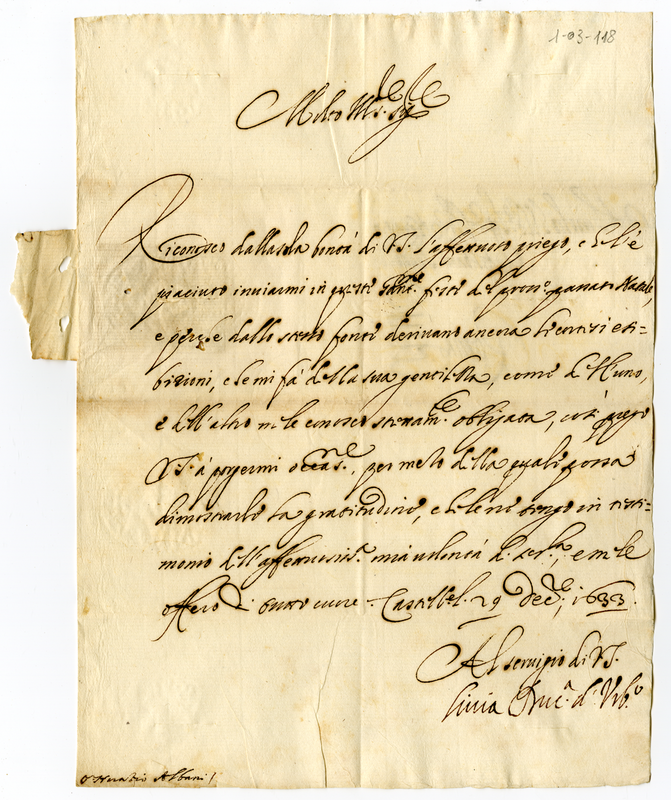 1-03-118
Molto Ill.re Sig.re
Riconosco dalla sola bontà di V.S. l'affettuoso priego, che l'è
piaciuto inviarmi in queste sant.e feste del pross.o passato Natale,
e perche dallo stesso fonte derivano ancora le cortesi esi=
bizioni, che mi fà della sua gentilezza, come dell'uno,
e dell'altro me le conosco strettam.te obligata, così prego
V.S. à porgermi occas.ne, per mezo della quale possa
dimostrarle la gratitudine, che le ne tengo in testi=
monio dell'affettuosiss.a mia volontà d. ser.la, e me le
offero di tutto cuore. Castell. 29 Dec.re, 1633.
Al servigio di V.S.
Livia Duc.a d'Urb.o
S. Horatio Albani